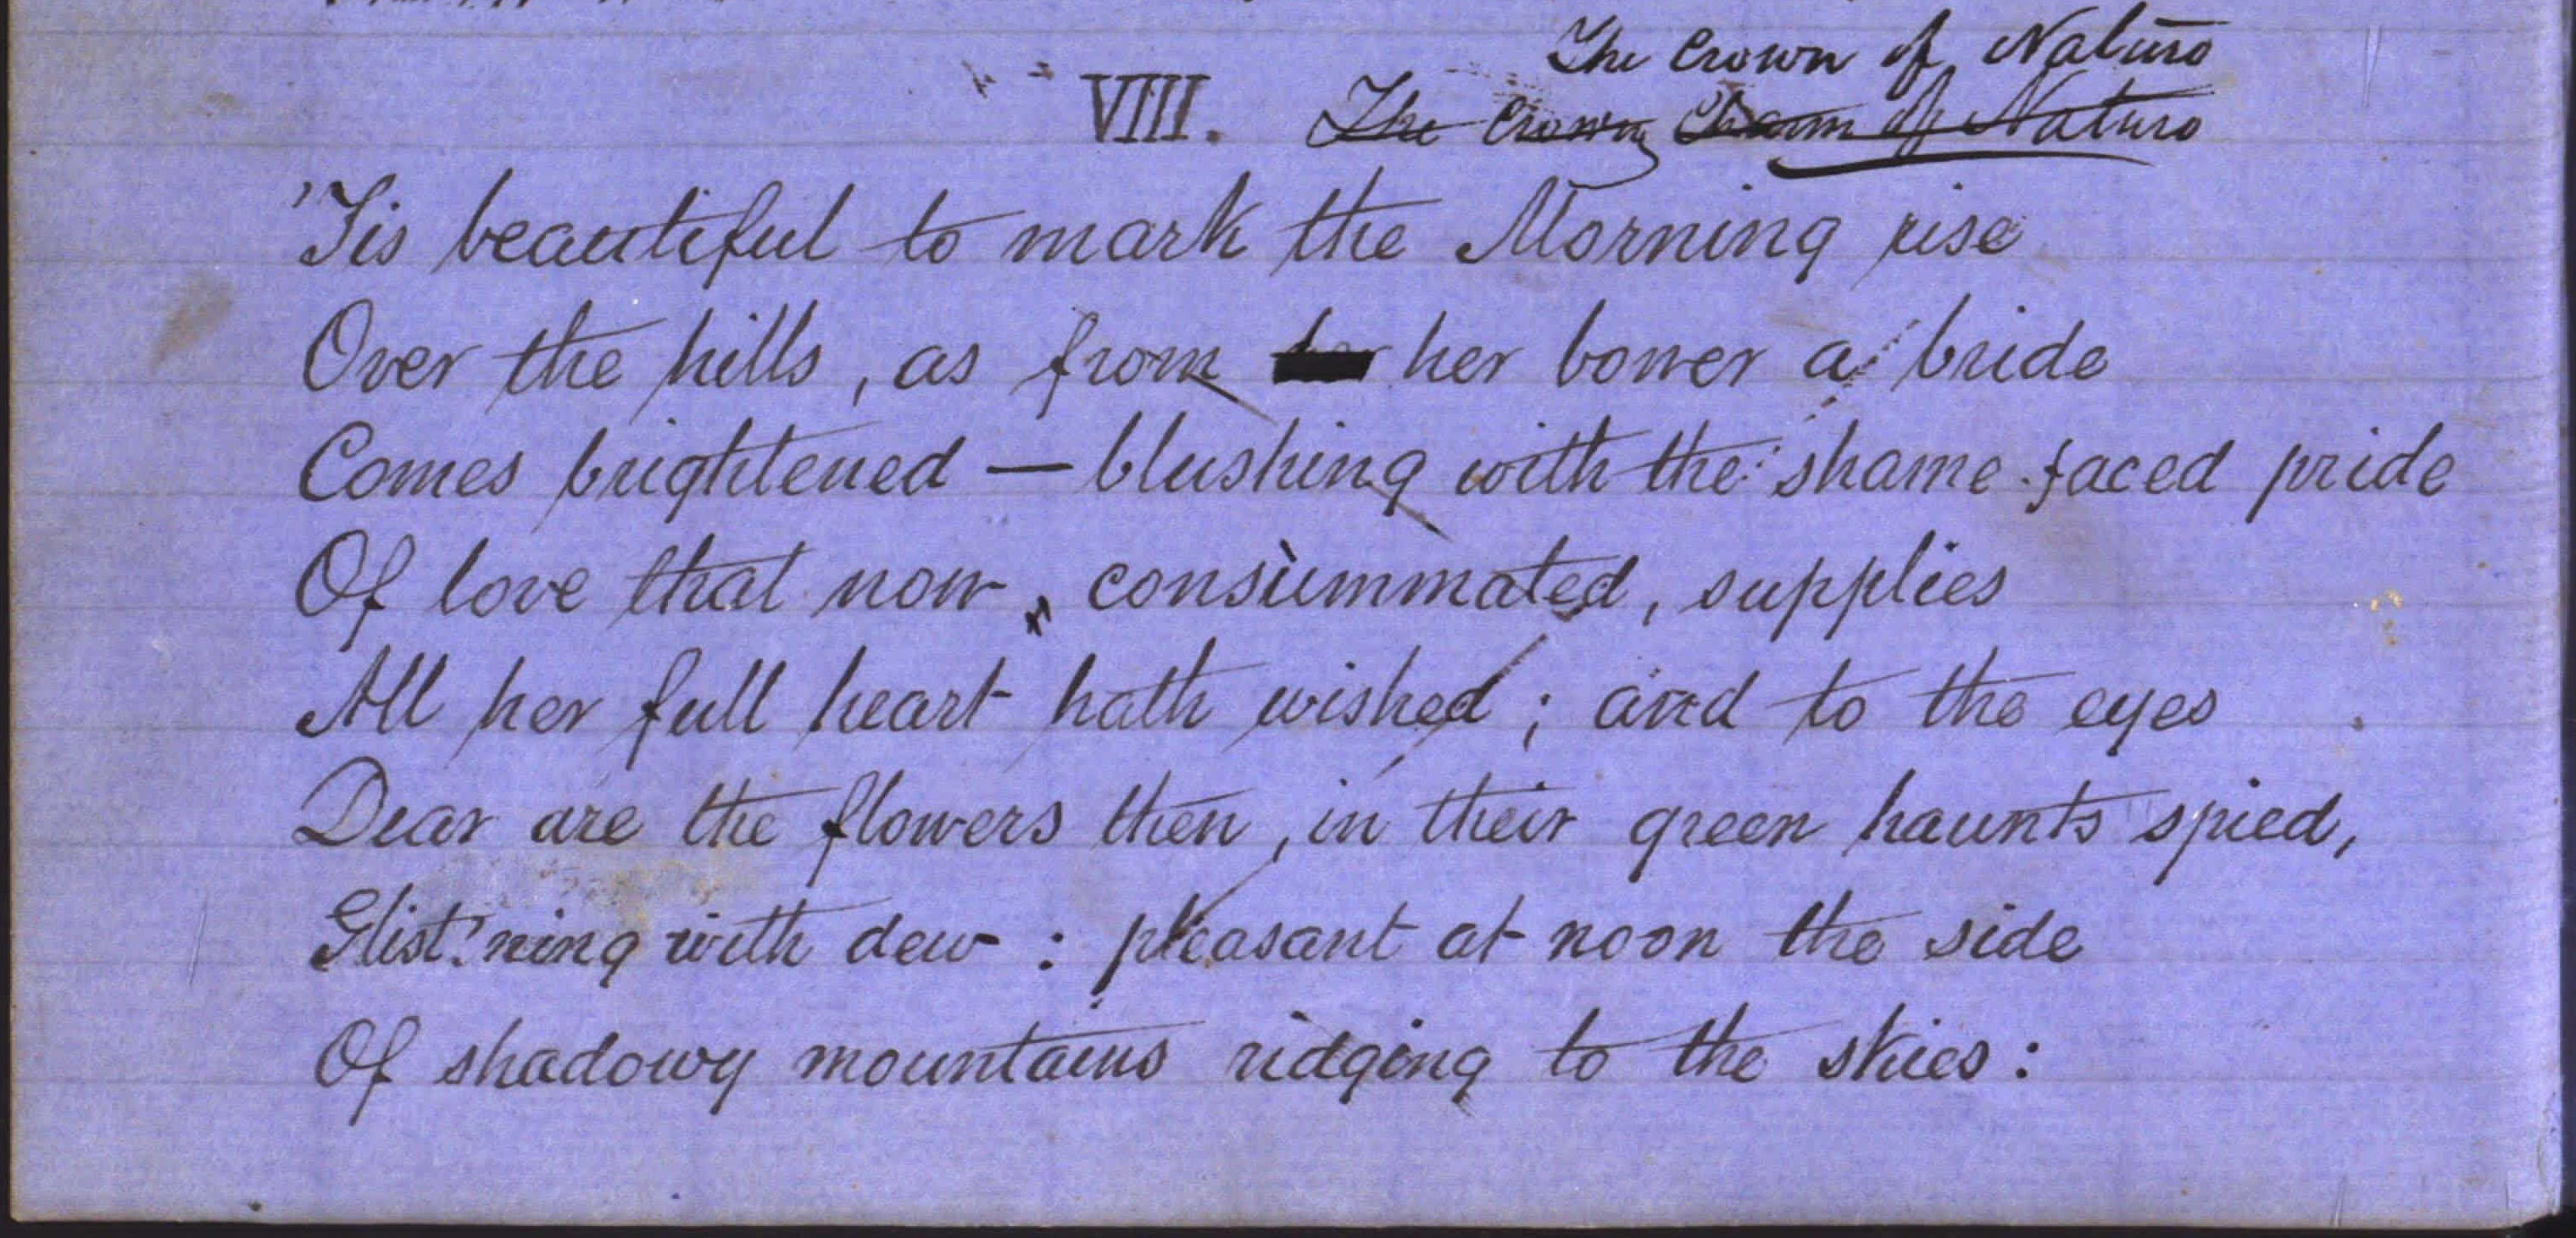 The Crown of Nature
VIII. The Crown Charm of Nature
'Tis beautiful to mark the Morning rise
Over the hills, as from her bower a bride
Comes brightened — blushing with the shame-faced pride
Of love that now, consummated, supplies
All her full heart hath wished; and to the eyes
Dear are the flowers then, in their green haunts spied,
Glist'ning with dew: pleasant at noon the side
Of shadowy mountains ridging to the skies: